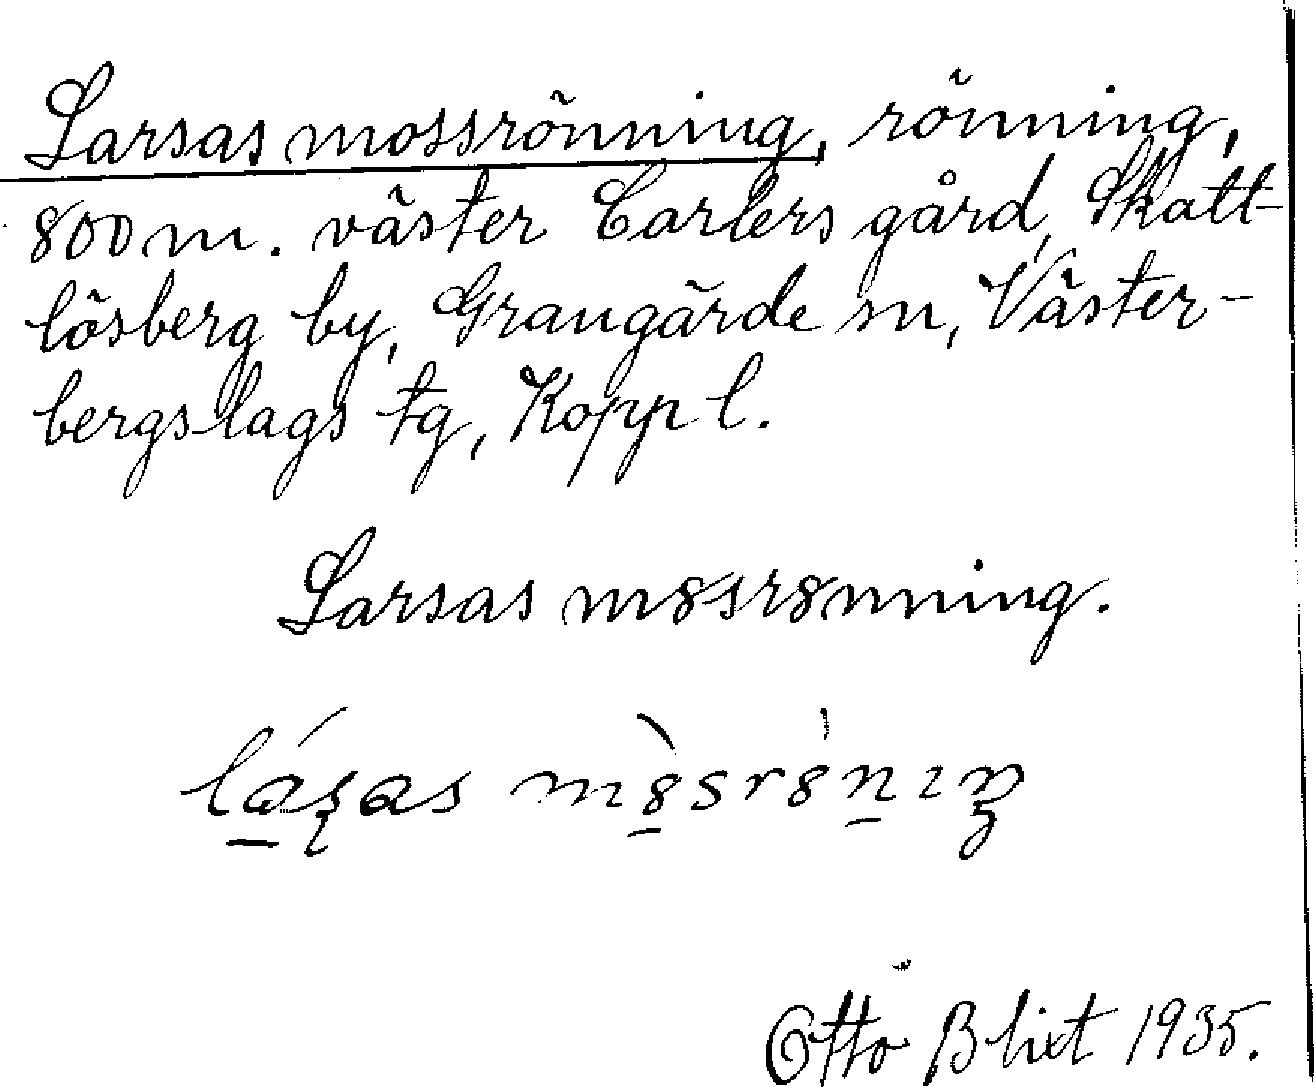 Larsas mossrönning, rönning,
800 m. väster Carlers gård, Skatt-
lösberg by, Grangärde sn, Väster-
bergslags tg, Kopp l.
Larsas m8sr8nning.
Otto Blixt 1935.